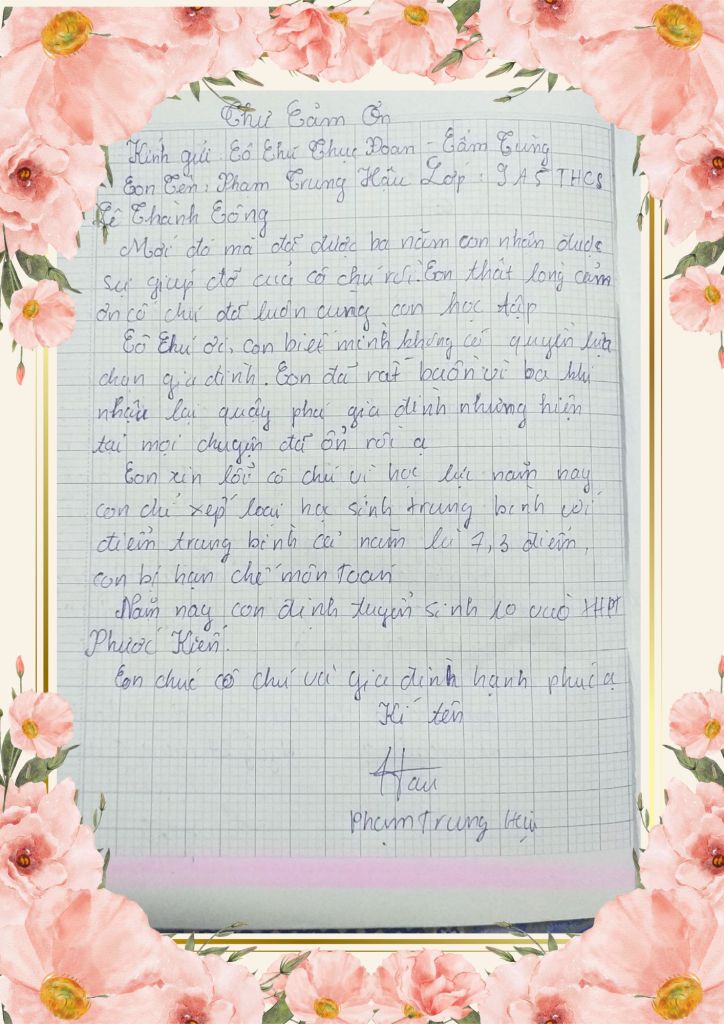 Thư Cảm Ơn
Kính gửi: Cô Chú Thục Đoan - Cẩm Tùng
Con Tên: Phạm Trung Hậu Lớp: 9A5 THCS
Lê Thành Công
Mới đó mà đã được ba năm con nhận được
sự giúp đỡ của cô chú rồi. Con thật lòng cảm
ơn cô chú đã luôn cùng con học tập
Cô Chú ơi, con biết mình không có quyền lựa
chọn gia đình. Con đã rất buồn vì ba khi
nhậu lại quậy phá gia đình nhưng hiện
tại mọi chuyện đã ổn rồi ạ
Con xin lỗi cô chú vì học lực năm nay
con chỉ xếp loại học sinh trung bình với
điểm trung bình cả năm là 7,3 điểm,
con bị hạn chế môn Toán
Năm nay con định tuyển sinh 10 vào THPT
Phước Kiển.
Con chúc cô chú và gia đình hạnh phúc ạ
Kí tên
Hậu
Phạm Trung Hậu